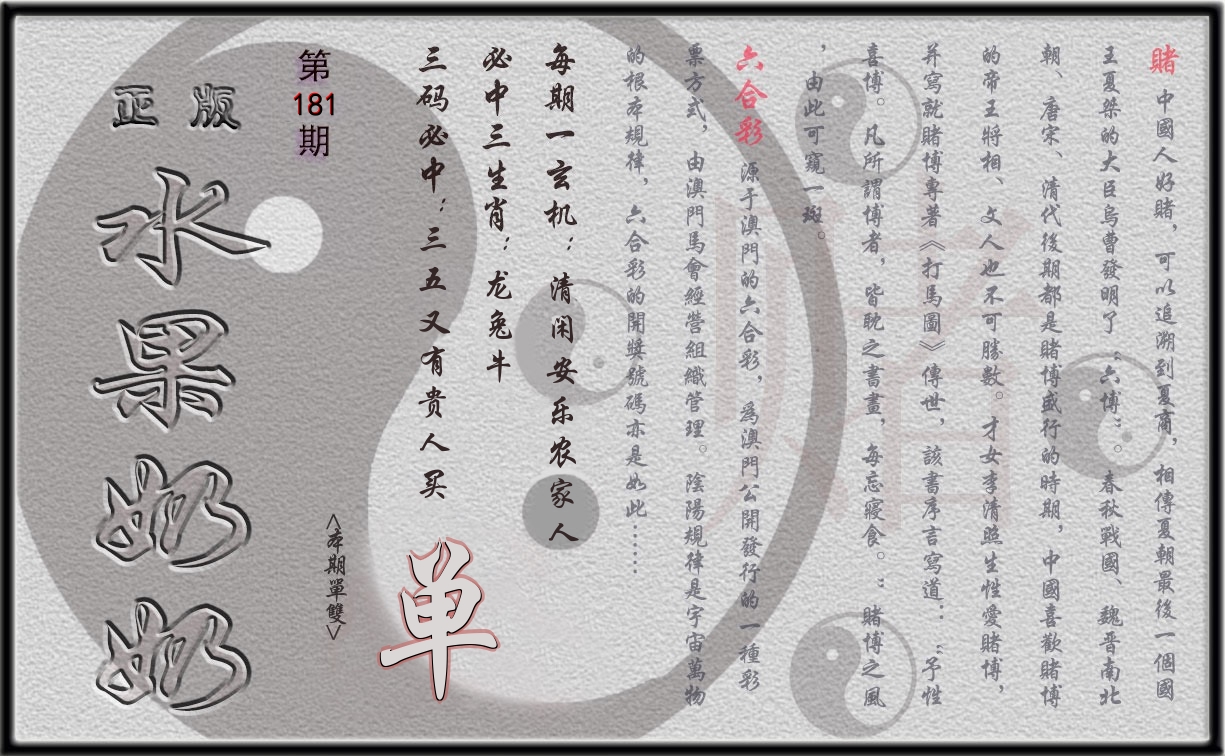 賭 中國人好賭，可以追溯到夏商，相傳夏朝最後一個國
王夏桀的大臣烏曹發明了“六博”。春秋戰國、魏晋南北
朝、唐宋、清代後期都是賭博盛行的時期，中國喜歡賭博
的帝王將相、文人也不可勝數。才女李清照生性愛賭博，
并寫就賭博專著《打馬圖》傳世，該書序言寫道：“予性
喜博。凡所謂博者，皆耽之晝晝，每忘寢食。”賭博之風
，由此可窺一斑。
六合彩 源于澳門的六合彩，爲澳門公開發行的一種彩
票方式，由澳門馬會經營組織管理。陰陽規律是宇宙萬物
的根本規律，六合彩的開獎號碼亦是如此……
每期一玄机：清闲安乐农家人
必中三生肖：龙兔牛
三码必中：三五又有贵人买
单
<本期單雙>
第181期
正版
水果奶奶
赌